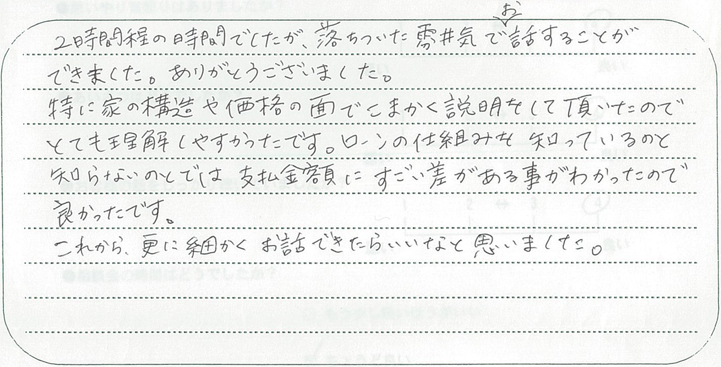 2時間程の時間でしたが、落ちついた雰井気でお話することが
できました。ありがとうございました。
特に家の構造や価格の面でこまかく説明をして頂いたので
とても理解しやすかったです。ローンの仕組みを知っているのと
知らないのとでは支払金額にすごい差がある事がわかったので
良かったです。
これから、更に細かくお話できたらいいなと思いました。